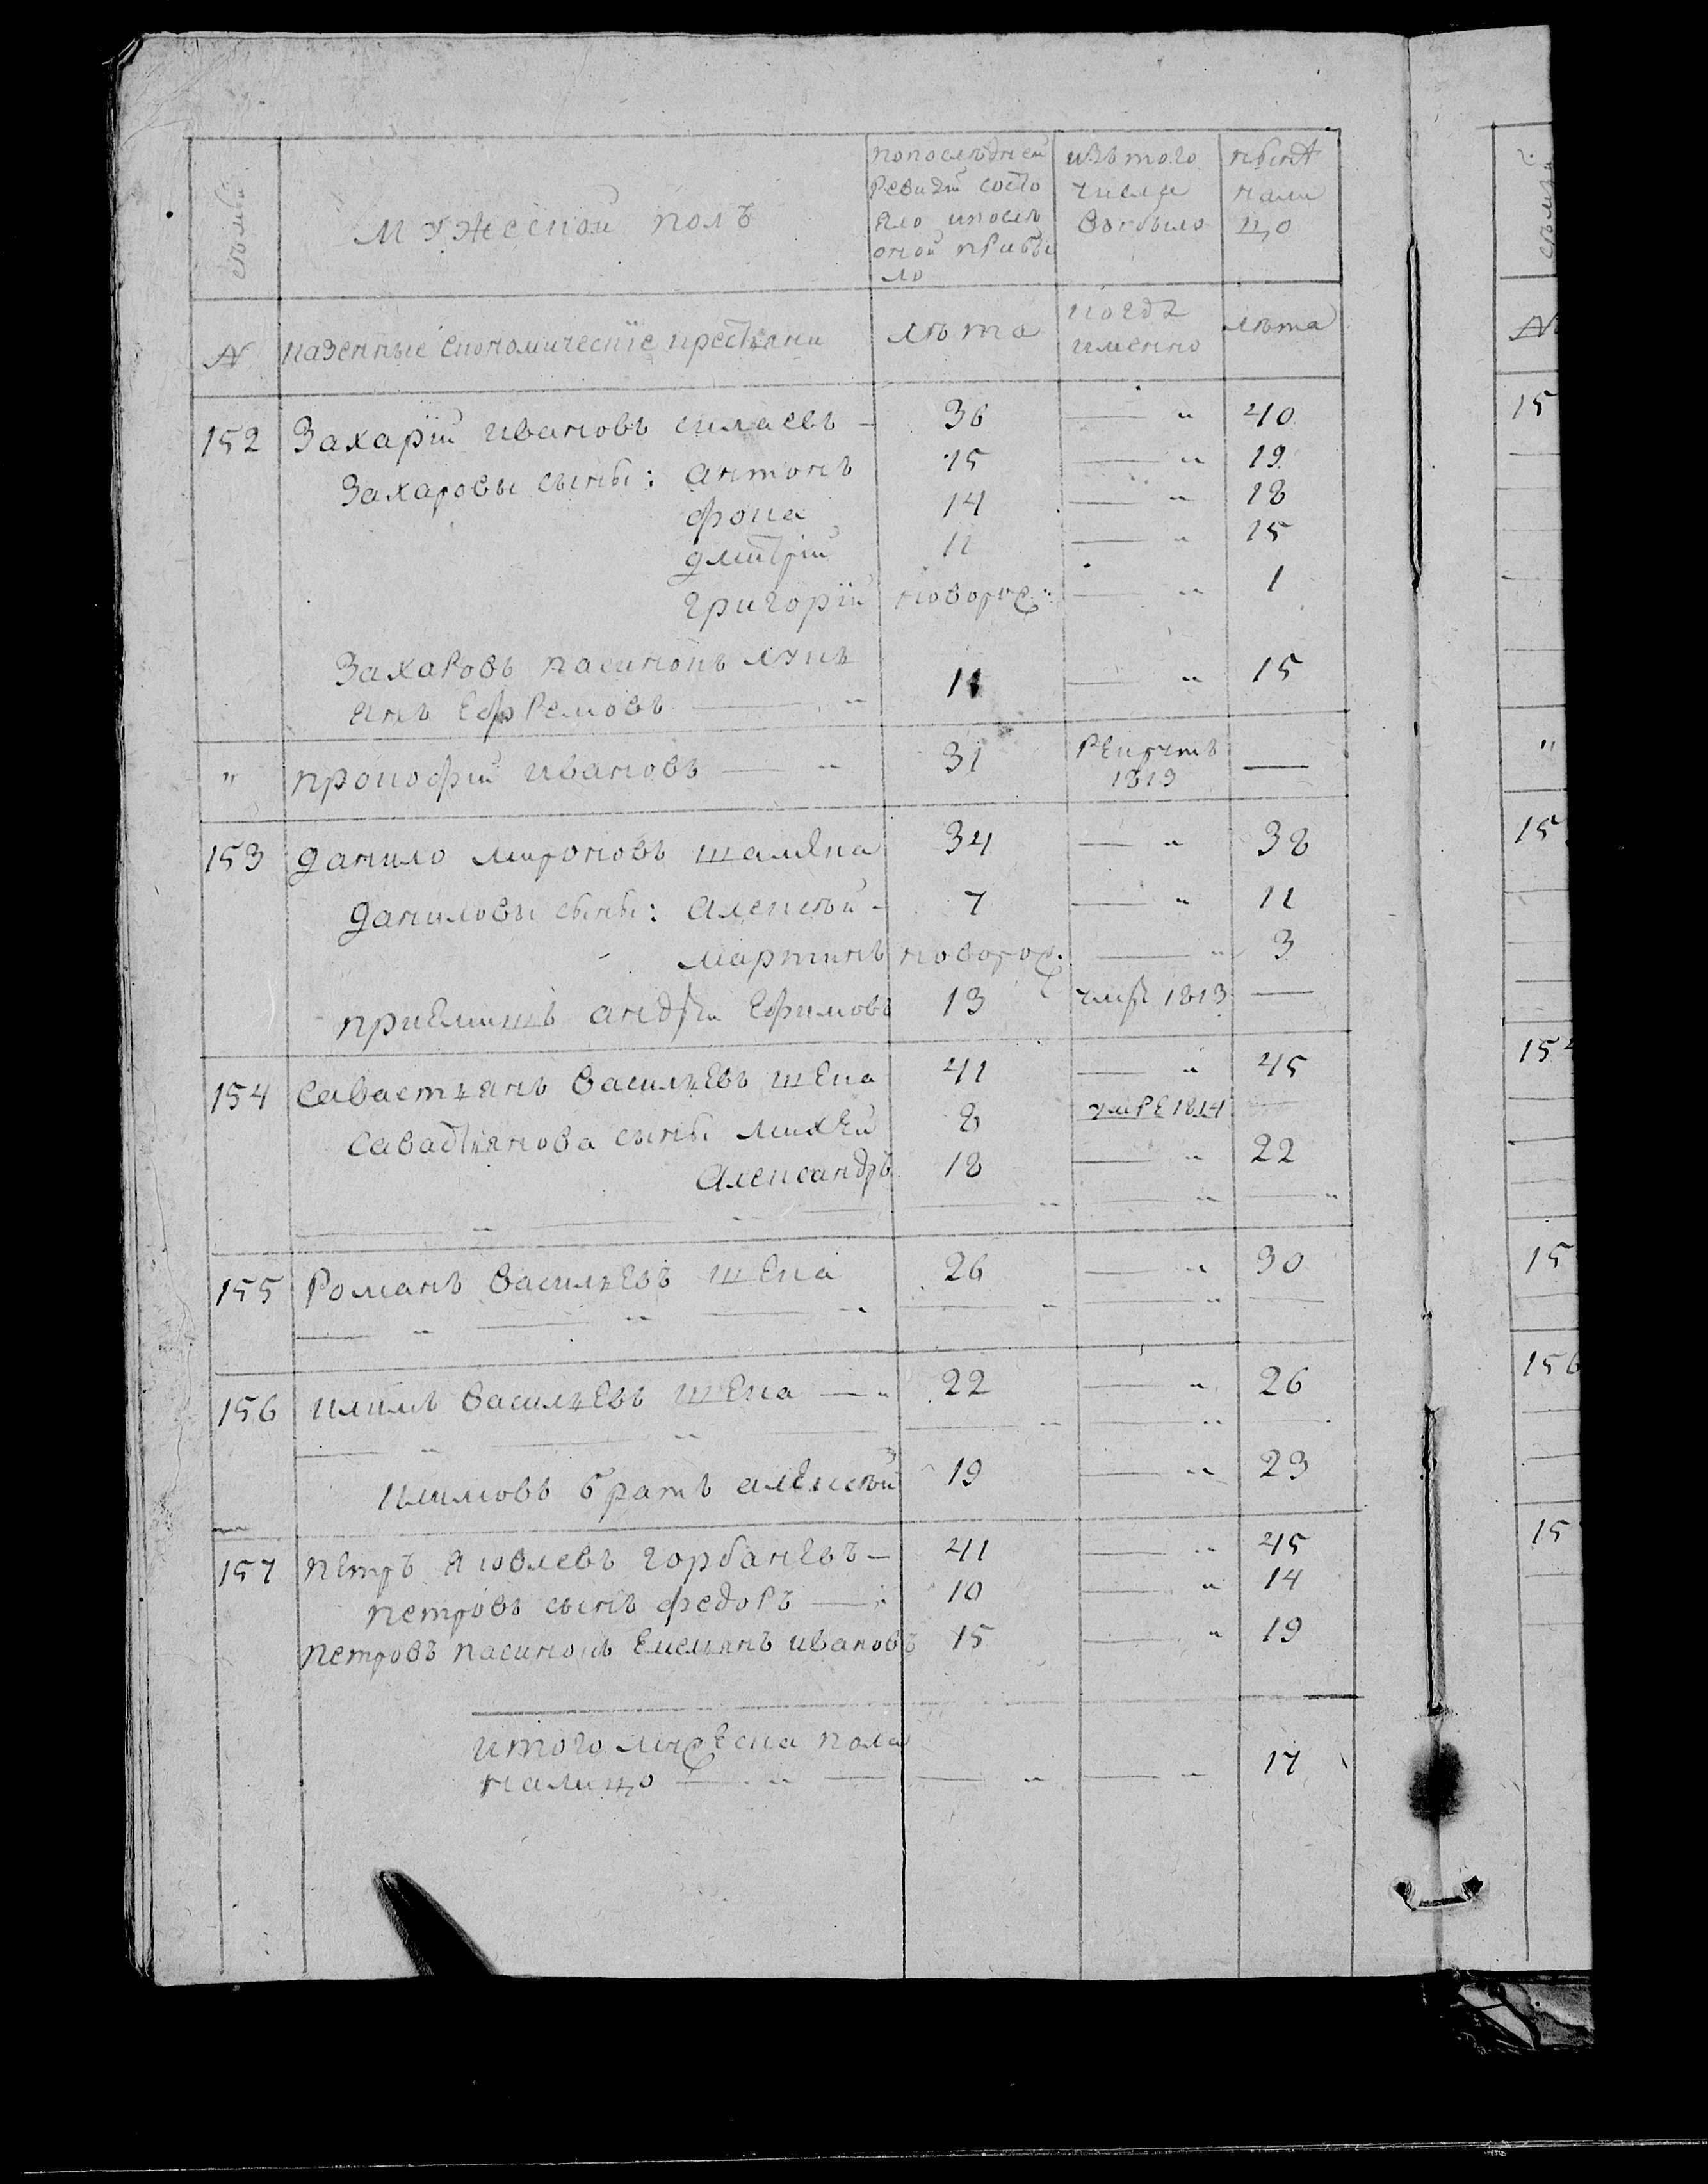 семьи
мужескои полъ
попоследней
Ревизiи состо
яло ипосле
оной прибы
ло
изътого
числа
выбыло
ныне
нали
цо
№
казенные економическiе крестьяни
лета
когда
именно
лета
152 Захарiй ивановъ силаевъ — 36 — " 40
Захаровы сыны: антонъ 15 — " 19
фока 14 — " 18
дмитрiй 11 — " 15
григорiй новорож: — " 1
Захаровъ пасинокъ лук
янъ Ефремовъ — " 11 — " 15
" прокофiй ивановъ — " 31 Рекрутъ 1813 —
153 данило мироновъ шамека 34 — " 38
даниловы сыны: алексей - 7 — " 11
мартинъ новорож. — " 3
приемишъ андрей Ефимовъ 13 умре 1813 —
154 Савастьянъ васильевъ шека 41 — " 45
Савастьянова сыны михей 8 умре 1814 —
александръ 18 — " 22
155 Романъ васильевъ шека 26 — " 30
156 климъ васильевъ шека — " 22 — " 26
климовъ братъ алексей 19 — " 23
157 петръ яковлевъ горбаневъ — 41 — " 45
петровъ сынъ федоръ — " 10 — " 14
петровъ пасинокъ емельянъ ивановъ 15 — " 19
итого мужеска пола
налицо — " — — " — " 17
семьи
№
15
"
15
154
15
156
15